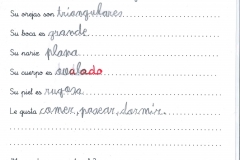 Su orejas son triangulares
Su boca es grande
Su nariz plana
Su cuerpo es ovalado
Su piel es rugosa
Le gusta comer, pasear, dormir.